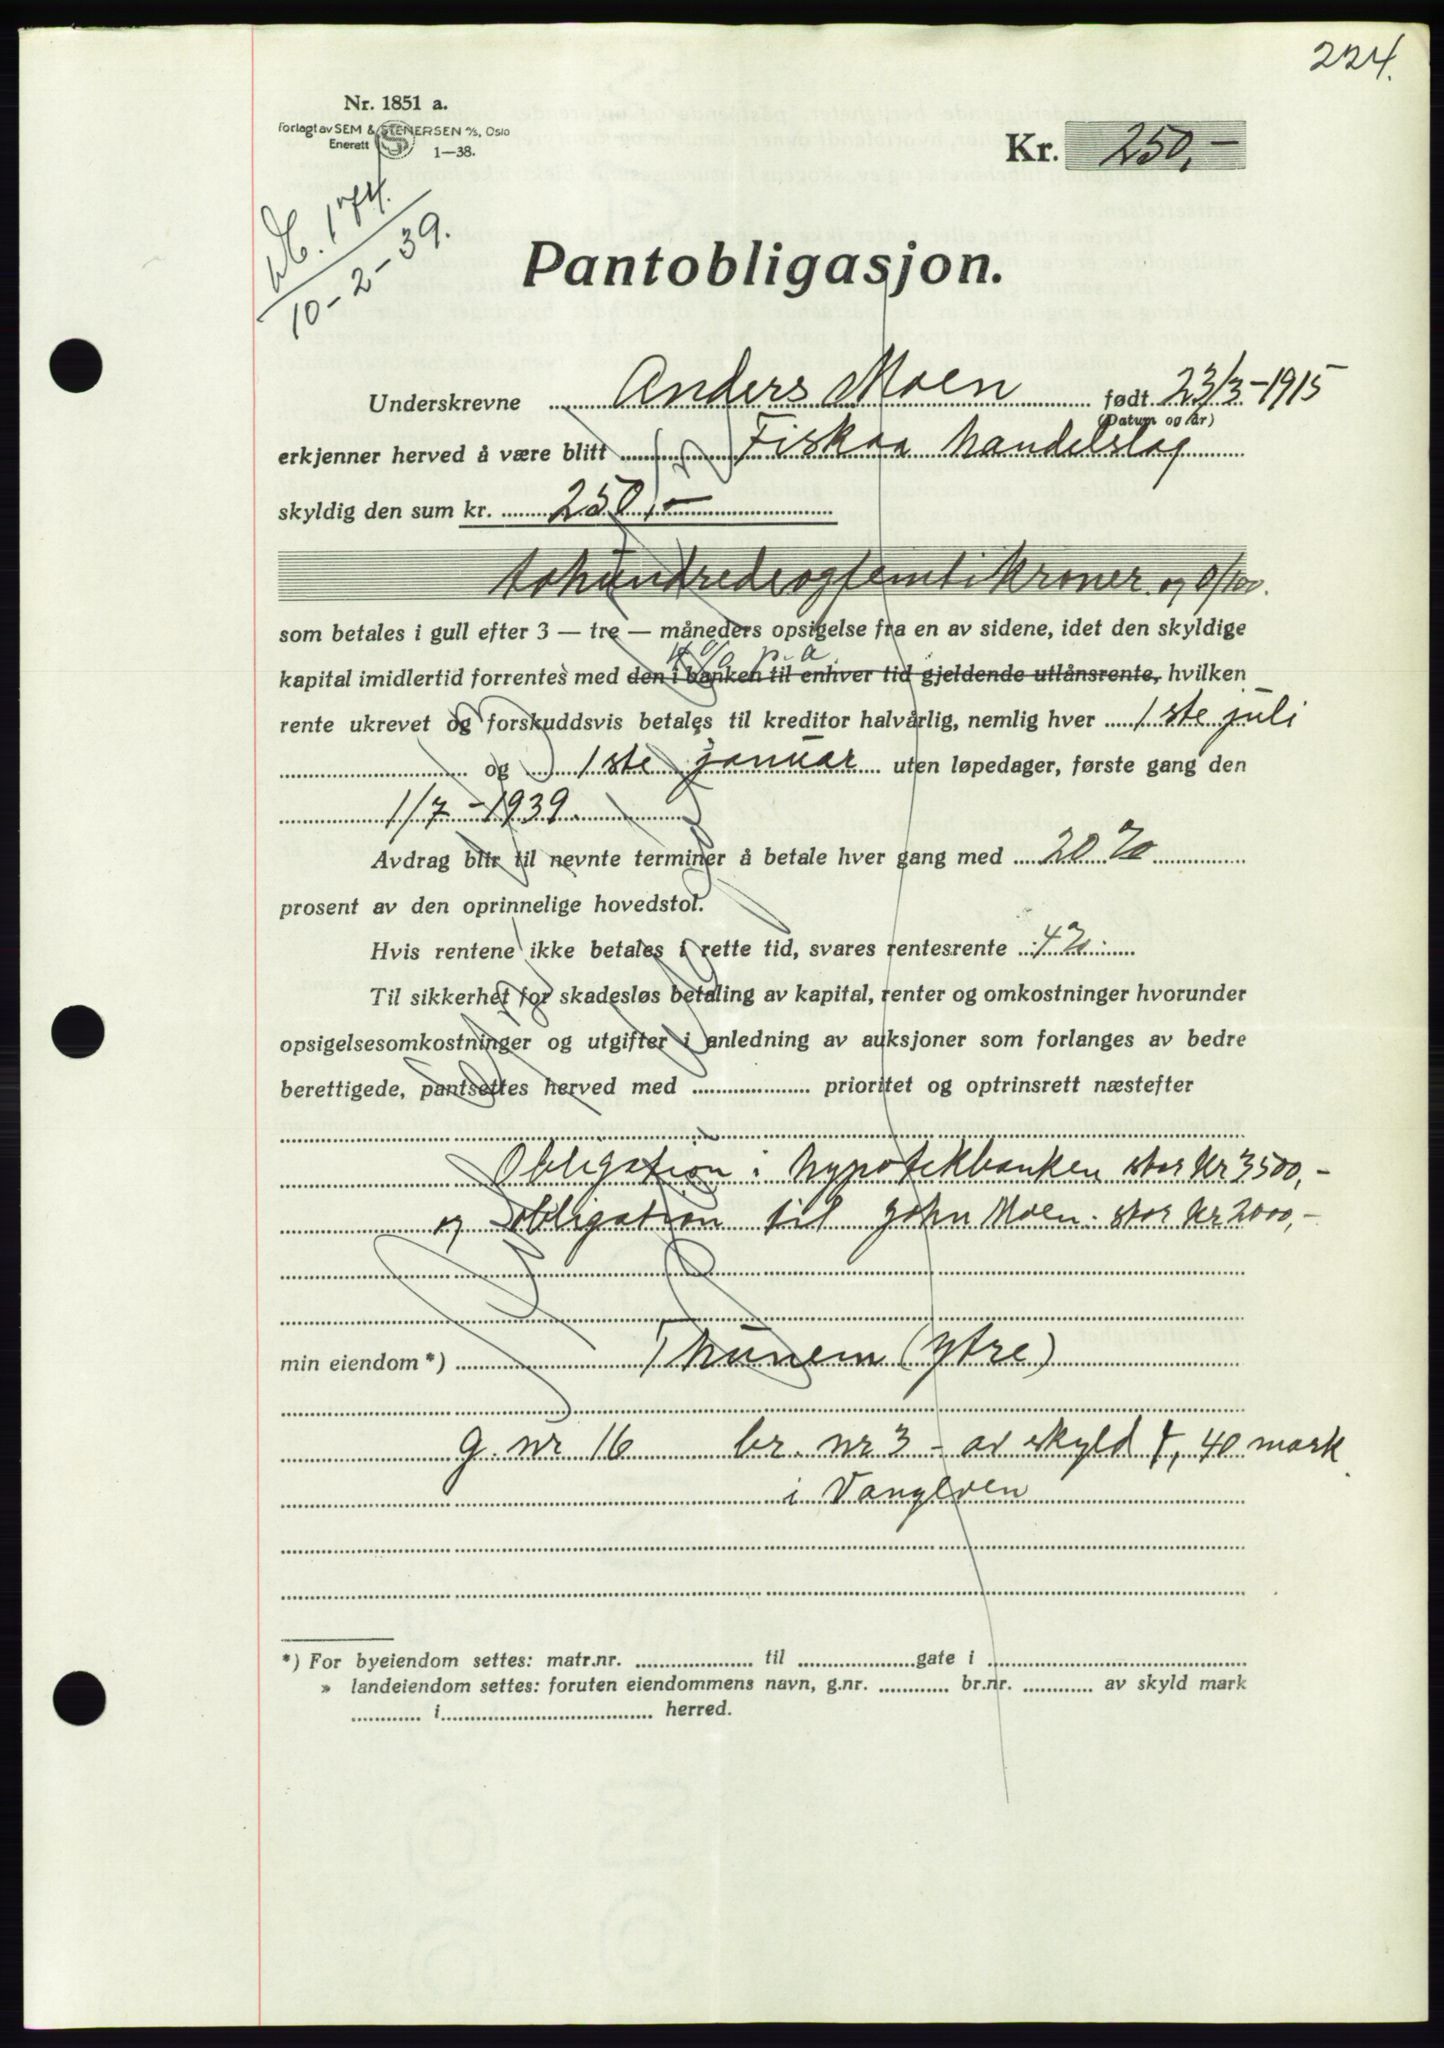 224.
Nr. 1851 a.
Forlagt av SEM & STENERSEN A/S, Oslo
Enerett
1—38.
Kr. 250,-
Db. 174.
10-2-39.
Pantobligasjon.
Underskrevne Anders Moen født 23/3-1915
(Datum og år)
erkjenner herved å være blitt Fiskaa Handelslag
skyldig den sum kr. 250,-
tohundredeogfemti kroner og 0/100.
som betales i gull efter 3 — tre — måneders opsigelse fra en av sidene, idet den skyldige
4% p. a
kapital imidlertid forrentes med den i banken til enhver tid gjeldende utlånsrente, hvilken
rente ukrevet og forskuddsvis betales til kreditor halvårlig, nemlig hver 1ste juli
og 1ste januar uten løpedager, første gang den
1/7-1939.
Avdrag blir til nevnte terminer å betale hver gang med 20%
prosent av den oprinnelige hovedstol.
Hvis rentene ikke betales i rette tid, svares rentesrente 4%
Til sikkerhet for skadesløs betaling av kapital, renter og omkostninger hvorunder
opsigelsesomkostninger og utgifter i anledning av auksjoner som forlanges av bedre
berettigede, pantsettes herved med prioritet og optrinsrett næstefter
Obligation i hypotekbanken stor kr 3500,-
og obligation til John Moen. stor kr 2000,-
min eiendom *) Thunem (ytre)
g. nr 16 br. nr 3 - av skyld 1,40 mark
i Vangleen
*) For byeiendom settes: matr.nr. til gate i
» landeiendom settes: foruten eiendommens navn, g.nr. br.nr. av skyld mark
i herred.